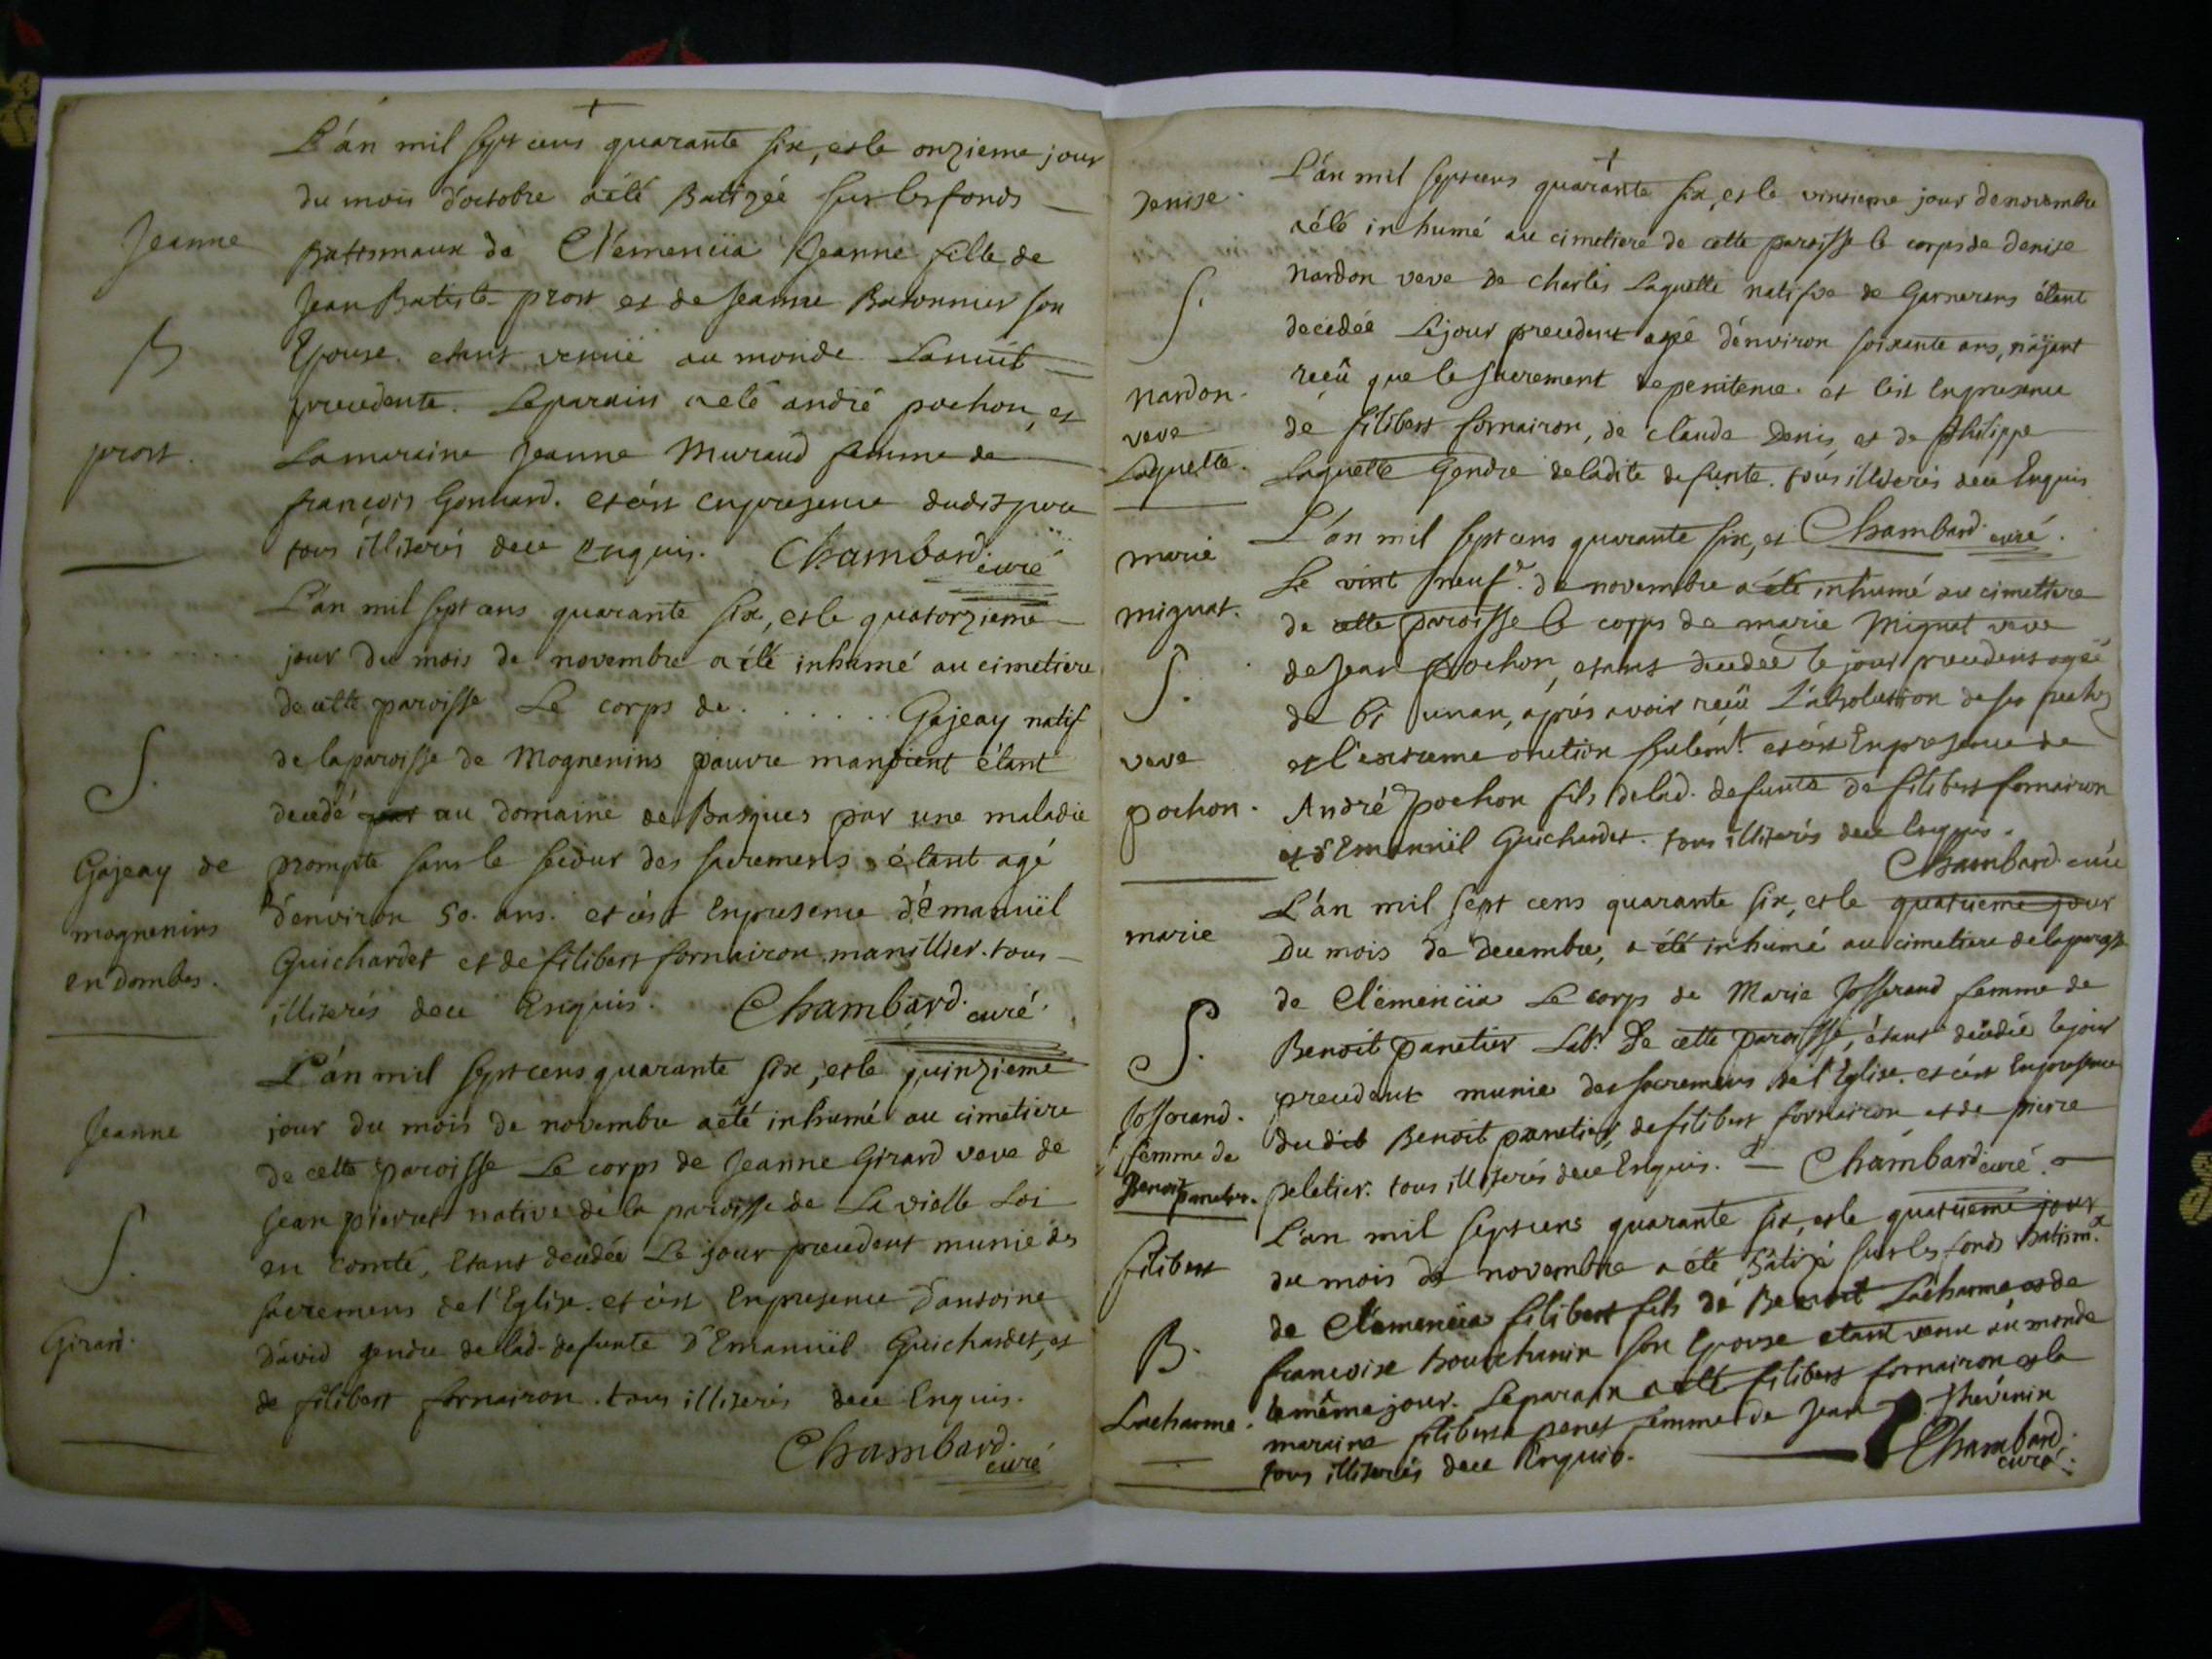 +
L'án mil sept cens quarante six, et le onzieme jour
du mois d'octobre a été Batizée sur les fonds
Jeanne
Batismaux de Clémencia Jeanne fille de
Jean Batiste prost et de Jeanne Batonnier son
B
Epouse. etant venuë au monde La nuit
precedente. Le parain a été andré pochon, et
prost.
La maraine Jeanne Muraud femme de
françois Gonnard. et c'est en presence dudit prost
tous illiterés de ce enquis. Chambard. curé
L'an mil sept cens quarante six, et le quatorzieme
jour du mois de novembre a été inhumé au cimetiere
de cette paroisse Le corps de . . . . . . Gajeay natif
de la paroisse de Mognenins pauvre mandient étant
S.
decedé au domaine de Basques par une maladie
Gajeay de
prompte sans le secour des sacremens étant agé
mognenins
d'environ 50. ans. et c'est En presence d'émanuël
en dombes.
Guichardet et de filibert fornairon manillier. tous
illiterés de ce Enquis. Chambard. curé.
L'án mil sept cens quarante six, et le quinzieme
Jeanne
jour du mois de novembre a été inhumé au cimetiere
de cette paroisse Le corps de Jeanne Girard veve de
S.
Jean pierret native de la paroisse de La vielle Loi
en comté, Etant decédée Le jour precedent munie des
sacremens de l'Eglise. et c'est En presence D'antoine
Girard.
David gendre de lad. defunte D'Emanuël Guichardet, et
de filibert fornairon. tous illiterés de ce Enquis.
Chambard. curé
+
Denise.
L'án mil sept cens quarante six, et le vintieme jour de novembre
a été inhumé au cimetiere de cette paroisse le corps de denise
S.
Nardon veve de Charles Laguette natifve de Garnerans étant
decedée Le jour precedent agé d'environ soixante ans, n'ayant
nardon.
reçû que le sacrement de penitence. et c'est En presence
veve
de filibert fornairon, de claude Denis, et de Philippe
Laguette.
Laguette Gendre de ladite defunte. tous illiterés de ce Enquis
L'án mil sept cens quarante six, et Chambard curé.
marie
Le vint neuf.e de novembre a été inhumé au cimettiere
mignat.
de cette paroisse le corps de marie Mignat veve
S.
de Jean Pochon, etant decedée le jour precedent agée
de 61 un an, aprés avoir reçû L'absolution de ses pechez
veve
et l'extreme onction seulem.t et c'est En presence de
pochon.
André pochon fils de lad. defunte de filibert fornairon
et d'Emanuël Guichardet. tous illiterés de ce Enquis.
Chambard curé
L'án mil sept cens quarante six, et le quatrieme jour
marie
Du mois de decembre, a été inhumé au cimetiere de la paroisse
de Clémencia Le corps de Marie Josserand femme de
S.
Benoit panetier Lab.r De cette paroisse, étant decédée le jour
precedent munie des sacremens de l'Eglise. et c'est En presence
Josserand.
dudit Benoit panetier, de filibert fornairon et de pierre
femme de
Benoit panetier.
peletier. tous illiterés de ce Enquis. — Chambard curé.
L'an mil sept cens quarante six, et le quatrieme jour
filibert
du mois de novembre a été Bâtizé sur les fonds batism.x
de Clémencia filibert fils de Benoit Lacharme et de
B.
francoise bouchanin son Epouse etant venu au monde
le même jour. Le parain a été filibert fornairon et la
Lacharme.
maraine filiberte penet femme de Jean Thévenin
tous illiterés de ce Enquis. Chambard. curé.